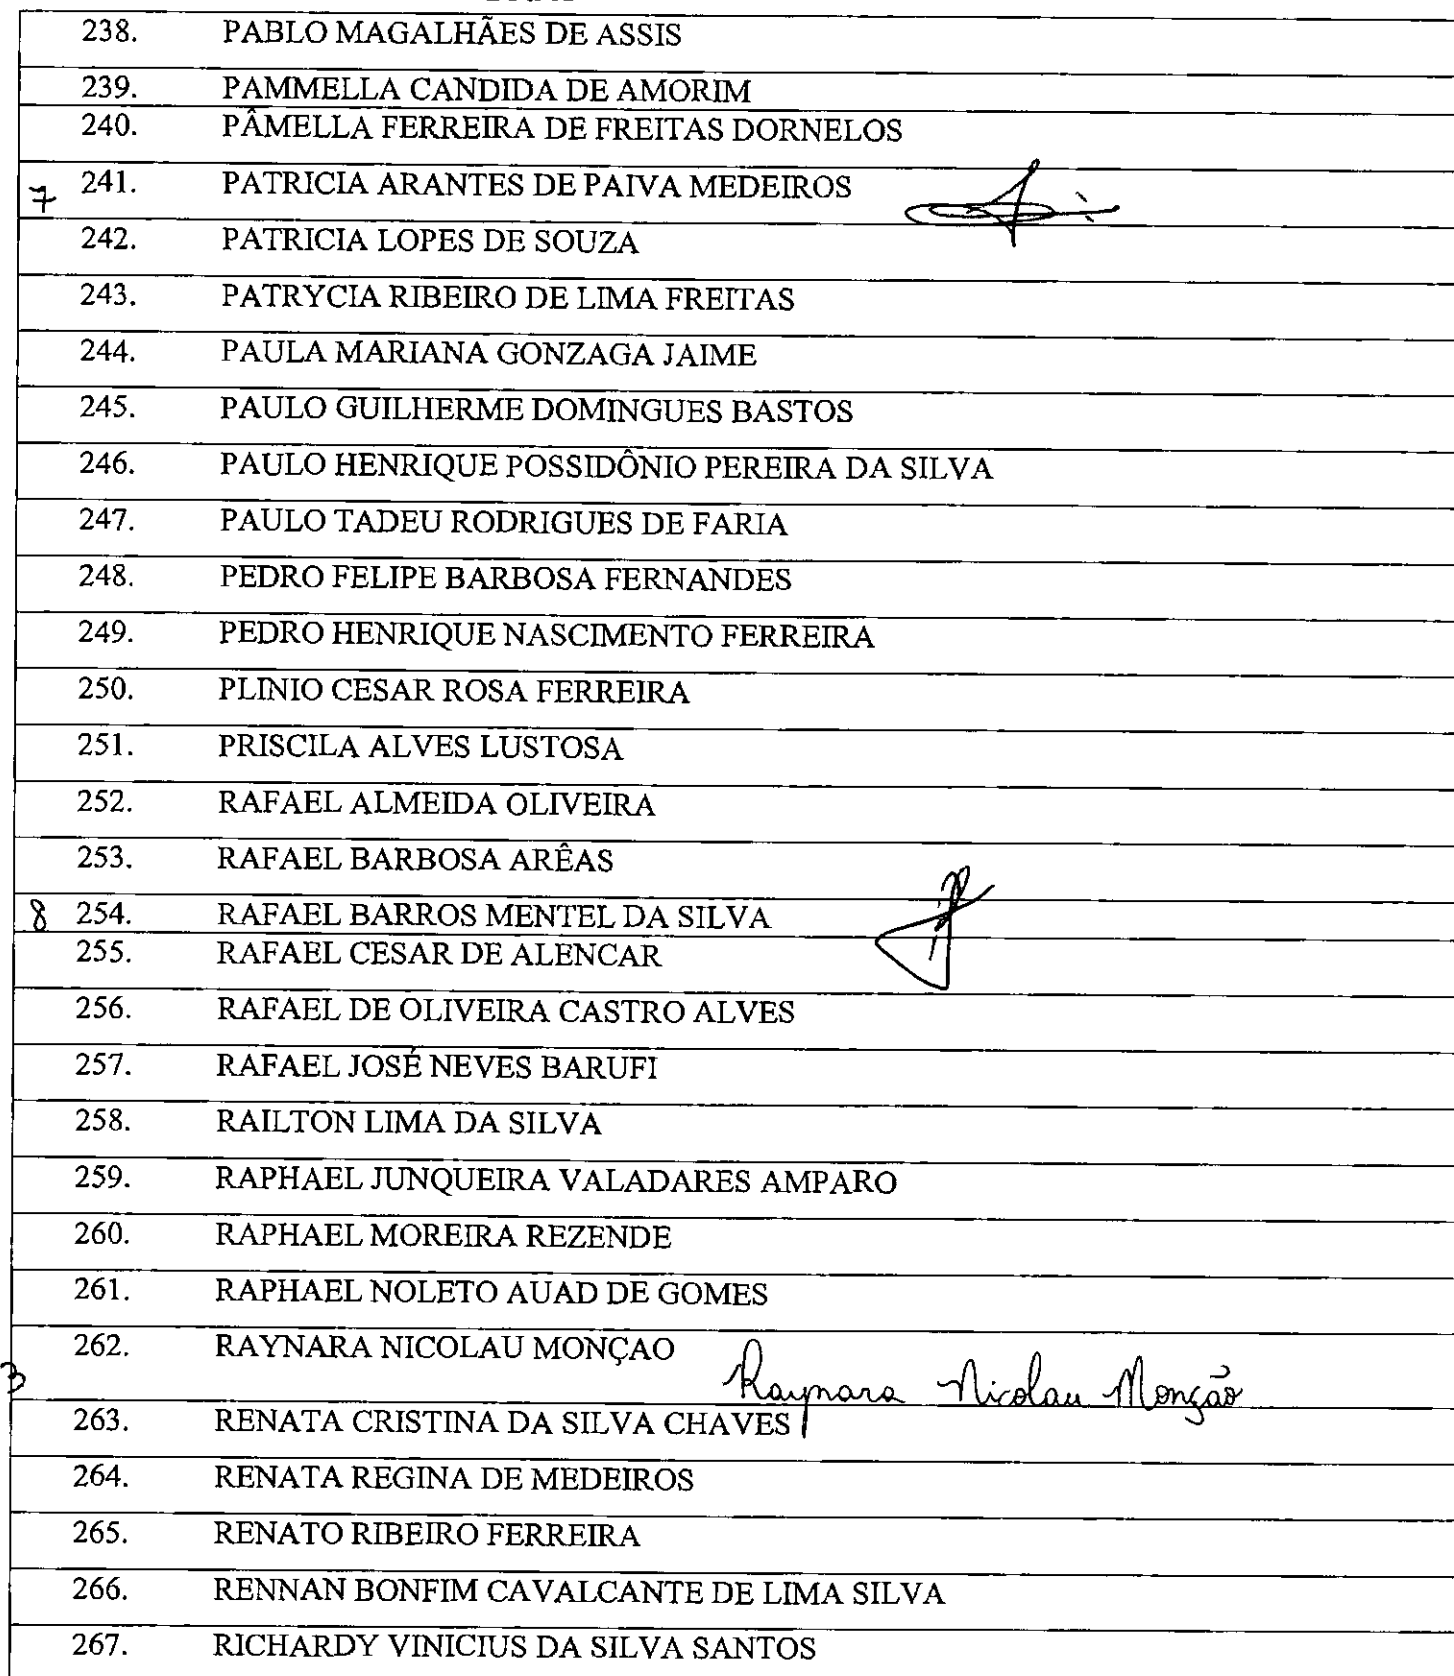 238. PABLO MAGALHÃES DE ASSIS
239. PAMMELLA CANDIDA DE AMORIM
240. PÂMELLA FERREIRA DE FREITAS DORNELOS
7 241. PATRICIA ARANTES DE PAIVA MEDEIROS
242. PATRICIA LOPES DE SOUZA
243. PATRYCIA RIBEIRO DE LIMA FREITAS
244. PAULA MARIANA GONZAGA JAIME
245. PAULO GUILHERME DOMINGUES BASTOS
246. PAULO HENRIQUE POSSIDÔNIO PEREIRA DA SILVA
247. PAULO TADEU RODRIGUES DE FARIA
248. PEDRO FELIPE BARBOSA FERNANDES
249. PEDRO HENRIQUE NASCIMENTO FERREIRA
250. PLINIO CESAR ROSA FERREIRA
251. PRISCILA ALVES LUSTOSA
252. RAFAEL ALMEIDA OLIVEIRA
253. RAFAEL BARBOSA ARÊAS
8 254. RAFAEL BARROS MENTEL DA SILVA
255. RAFAEL CESAR DE ALENCAR
256. RAFAEL DE OLIVEIRA CASTRO ALVES
257. RAFAEL JOSÉ NEVES BARUFI
258. RAILTON LIMA DA SILVA
259. RAPHAEL JUNQUEIRA VALADARES AMPARO
260. RAPHAEL MOREIRA REZENDE
261. RAPHAEL NOLETO AUAD DE GOMES
262. RAYNARA NICOLAU MONÇAO
3 Raynara Nicolau Monção
263. RENATA CRISTINA DA SILVA CHAVES
264. RENATA REGINA DE MEDEIROS
265. RENATO RIBEIRO FERREIRA
266. RENNAN BONFIM CAVALCANTE DE LIMA SILVA
267. RICHARDY VINICIUS DA SILVA SANTOS